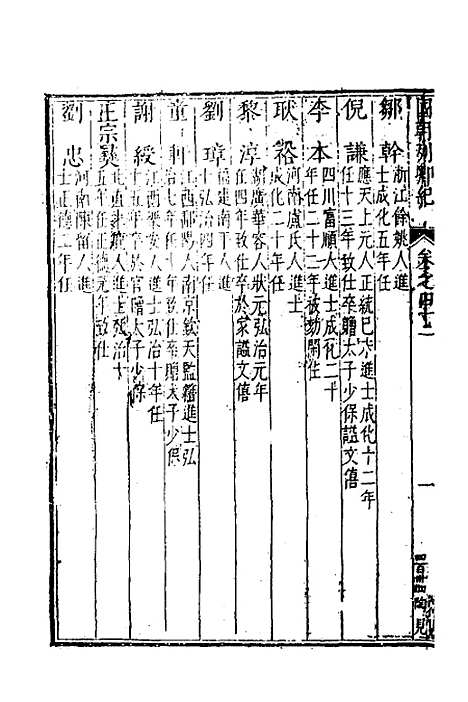 國朝列卿紀　卷之四十二　一
鄒幹　浙江餘姚人進
士成化五年任
倪謙　應天上元人正統己未進士成化十二年
任十三年致仕卒贈太子少保謚文僖
李本　四川富順人進士成化二十
年任二十二年被劾閒住
耿裕　河南盧氏人進士
成化二十年任
黎淳　湖廣華容人狀元弘治元年
任四年致仕卒於家謚文僖
劉璋　福建南平人進
士弘治四年任
童軒　江西鄱陽人南京欽天監籍進士弘
治七年任十年致仕卒贈太子少保
謝綬　江西樂安人進士弘治十年任
十五年卒於官贈太子少保
王宗彝　直隸束鹿人進士弘治十
五年任正德元年致仕
劉忠　河南陳留人進
士正德二年任